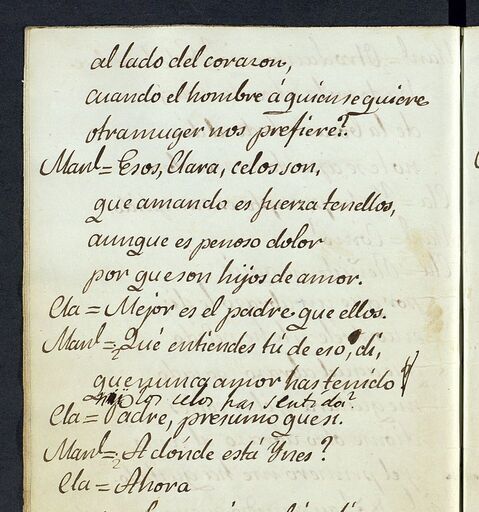 al lado del corazon,
cuando el hombre á quien se quiere
otra muger nos prefiere?
Manl = Esos, Clara, celos son,
que amando es fuerza tenellos,
aunque es penoso dolor
por que son hijos de amor.
Cla = Mejor es el padre que ellos.
Manl = ¿Qué entiendes tú de eso, di,
que nunca amor has tenido
los celos has sentido?
Cla = Padre, presumo que si.
Manl = ¿A dónde está Ynes?
Cla = Ahora